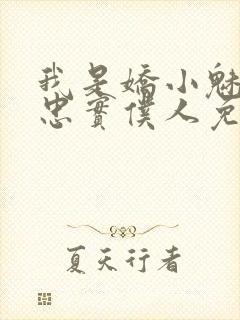 我是嬌小魅
忠實僕人免
夏天行者